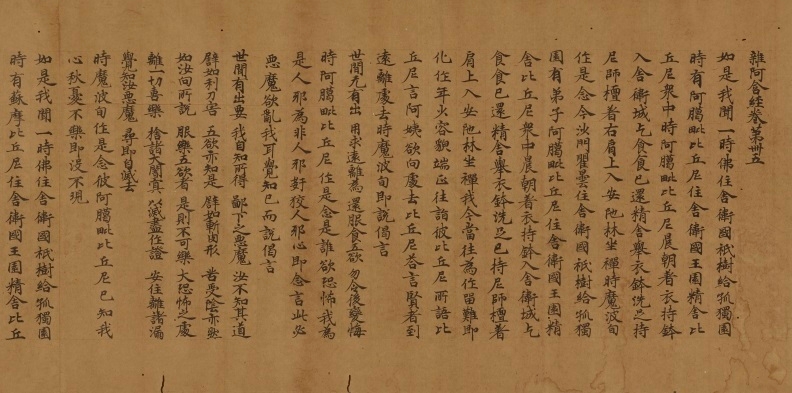 雜阿含經卷第卌五
如是我聞一時佛住舍衛國祇樹給孤獨園
時有阿臈毗比丘尼住舍衛國王園精舍比
丘尼衆中時阿臈毗比丘尼晨朝著衣持鉢
入舍衛城乞食食已還精舍舉衣鉢洗足持
尼師檀著右肩上入安陁林坐禪時魔波旬
作是念今沙門瞿曇住舍衛國祇樹給孤獨
園有弟子阿臈毗比丘尼住舍衛國王園精
舍比丘尼衆中晨朝著衣持鉢入舍衛城乞
食食已還精舍舉衣鉢洗足已持尼師檀著
肩上入安陁林坐禪我今當往為作留難即
化作年少容貌端正往詣彼比丘尼所語比
丘尼言阿姨欲向處去比丘尼荅言賢者到
遠離處去時魔波旬即說偈言
世間无有出 用求遠離為 還服食五欲 勿令後變悔
時阿臈毗比丘尼作是念是誰欲恐怖我為
是人耶為非人耶姧狡人耶心即念言此必
惡魔欲亂我耳覺知已而說偈言
世間有出要 我自知所得 鄙下之惡魔 汝不知其道
譬如利刀害 五欲亦如是 譬如斬肉形 苦受陰亦然
如汝向所說 服樂五欲者 是則不可樂 大恐怖之處
離一切喜樂 捨諸大闇冥 以滅盡作證 安住離諸漏
覺知汝惡魔 尋即自滅去
時魔波旬作是念彼阿臈毗比丘尼已知我
心愁憂不樂即沒不現
如是我聞一時佛住舍衛國祇樹給孤獨園
時有蘇摩比丘尼住舍衛國王園精舍比丘